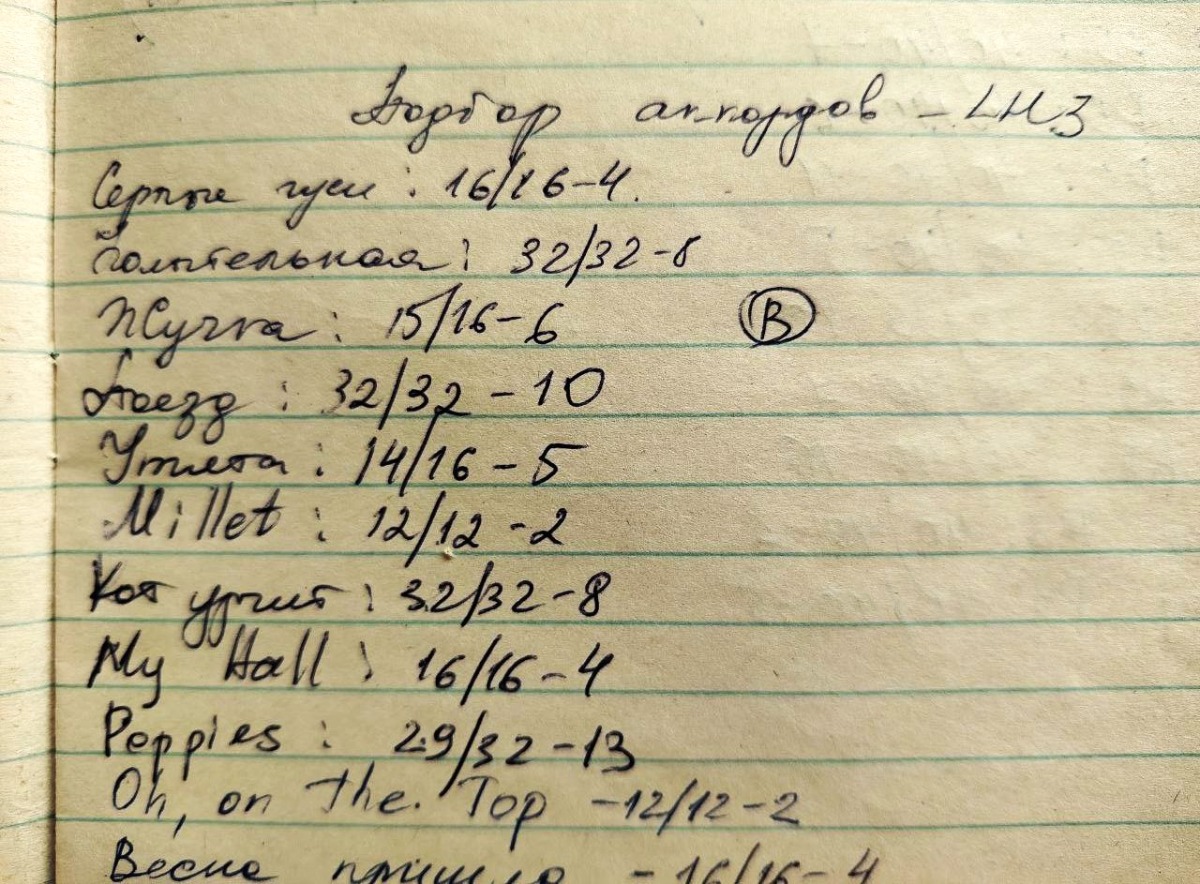 Подбор аккордов - LH3
Серые гуси : 16/16-4.
Колыбельная : 32/32-8
Жучка : 15/16-6 В
Поезд : 32/32-10
Утята : 14/16-5
Millet : 12/12-2
Кот урчит : 32/32-8
My Hall : 16/16-4
Peppies : 29/32-13
Oh, on the. Top -12/12-2
Весна пришла - 16/16-4